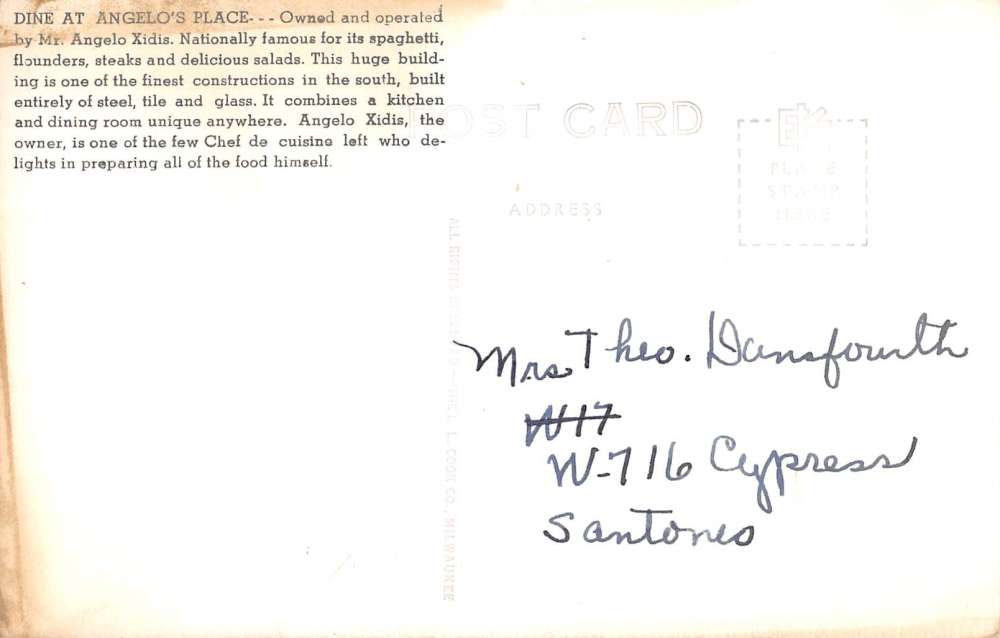 DINE AT ANGELO'S PLACE- - - Owned and operated
by Mr. Angelo Xidis. Nationally famous for its spaghetti,
flounders, steaks and delicious salads. This huge build-
ing is one of the finest constructions in the south, built
entirely of steel, tile and glass. It combines a kitchen
and dining room unique anywhere. Angelo Xidis, the
owner, is one of the few Chef de cuisine left who de-
lights in preparing all of the food himself.
POST CARD
EKC
PLACE
STAMP
HERE
ADDRESS
ALL RIGHTS L. L. COOK CO., MILWAUKEE
Mrs Theo. Dansfourth
W17
W-716 Cypress
Santones